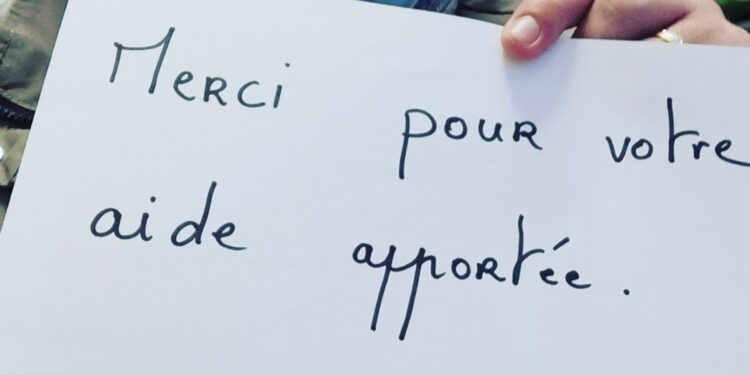 Merci pour votre
aide apportée.